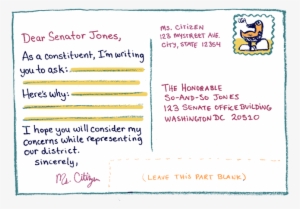 Dear Senator Jones,
As a constituent, I'm writing
you to ask:
Here's why:
I hope you will consider my
concerns while representing
our district.
sincerely,
Ms. Citizen
Ms. Citizen
123 Mystreet Ave.
City, State 12364
USA
The Honorable
So-and-So Jones
123 Senate Office Building
Washington DC 20510
(Leave this part blank)